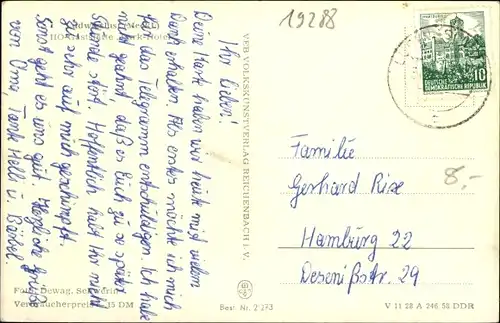 19288
Ludwigslust (Meckl.)
HO-Gaststätte "Park-Hotel"
Ihr Lieben!
Deine Karte haben wir heute mit vielem
Dank erhalten. Als erstes möchte ich mich
für das Telegramm entschuldigen. Ich habe
nicht geahnt, daß es Euch zu so später
Stunde stört. Hoffentlich habt Ihr nicht
zu sehr auf mich geschimpft.
Sonst geht es uns gut. Herzliche Grüße
von Oma, Tante Helli u. Bärbel
Foto: Dewag, Schwerin
Verbraucherpreis: 15 DM
VEB VOLKSKUNSTVERLAG REICHENBACH i. V.
Best. Nr. 2 273
WARTBURG
10
DEUTSCHE
DEMOKRATISCHE REPUBLIK
Familie
Gerhard Rixe
Hamburg 22
Desenißstr. 29
8,-
V 11 28 A 246 58 DDR